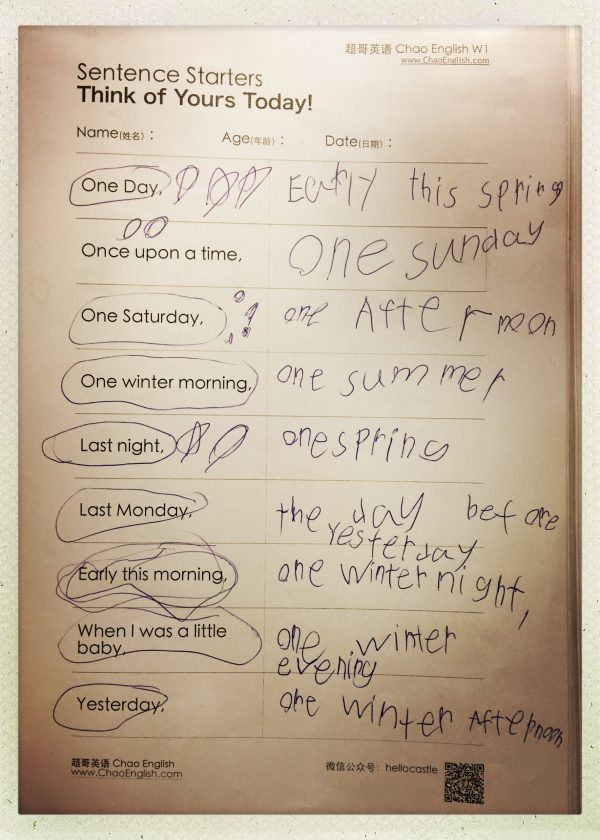 超哥英语 Chao English W1
www.ChaoEnglish.com
Sentence Starters
Think of Yours Today!
Name(姓名)： Age(年龄)： Date(日期)：
One Day, Early this spring
Once upon a time, One sunday
One Saturday, one Afternoon
One winter morning, one summer
Last night, one spring
Last Monday, the day before
yesterday
Early this morning, one winter night,
When I was a little one winter
baby, evening
Yesterday, one winter Afternoon
超哥英语 Chao English 微信公众号：hellocastle
www.ChaoEnglish.com